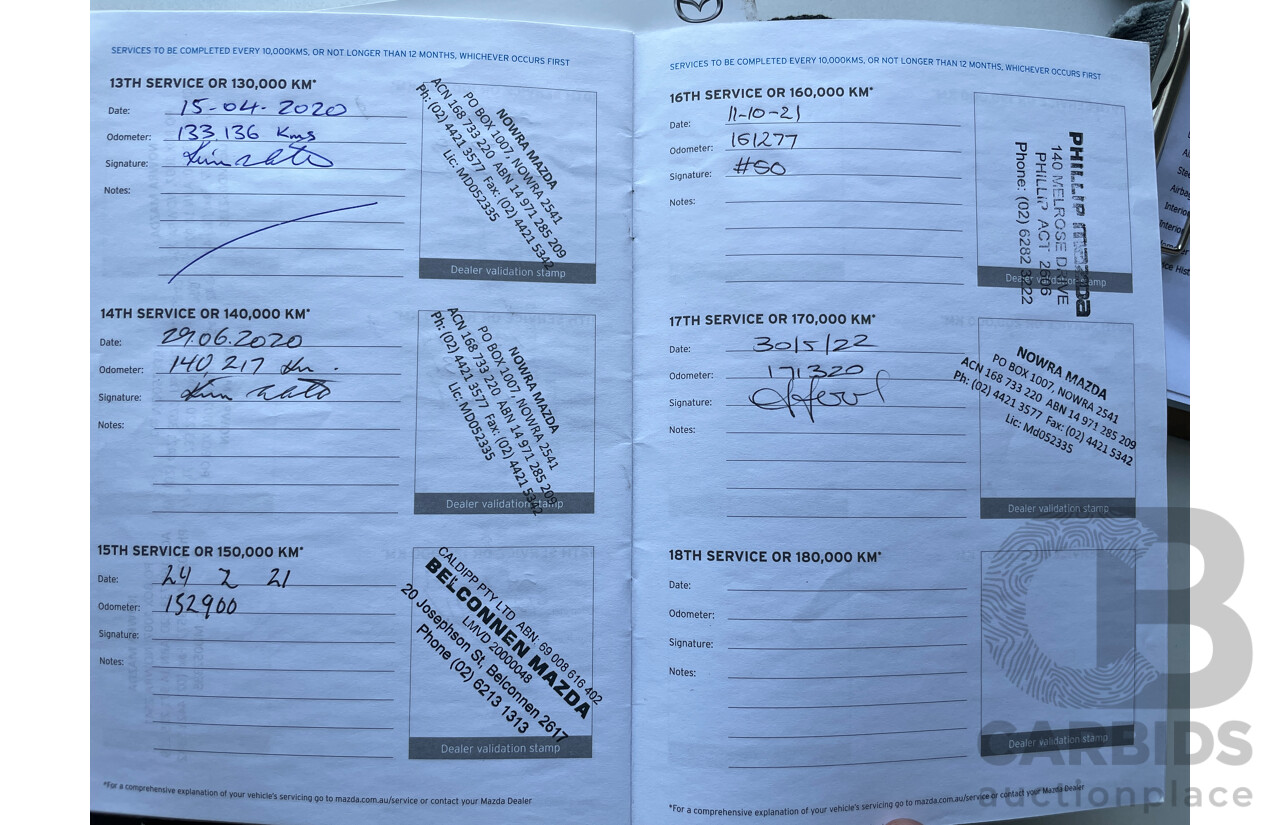 SERVICES TO BE COMPLETED EVERY 10,000KMS, OR NOT LONGER THAN 12 MONTHS, WHICHEVER OCCURS FIRST
13TH SERVICE OR 130,000 KM*
Date: 15-04-2020
Odometer: 133,136 Kms
Signature:
Notes:
NOWRA MAZDA
PO BOX 1007, NOWRA 2541
ACN 168 733 220 ABN 14 971 285 209
Ph: (02) 4421 3577 Fax: (02) 4421 5342
Lic: MD052335
Dealer validation stamp
14TH SERVICE OR 140,000 KM*
Date: 29.06.2020
Odometer: 140,217 Km.
Signature:
Notes:
NOWRA MAZDA
PO BOX 1007, NOWRA 2541
ACN 168 733 220 ABN 14 971 285 209
Ph: (02) 4421 3577 Fax: (02) 4421 5342
Lic: MD052335
Dealer validation stamp
15TH SERVICE OR 150,000 KM*
Date: 24 2 21
Odometer: 152900
Signature:
Notes:
CALDIPP PTY LTD ABN: 69 008 616 402
BELCONNEN MAZDA
LMVD 20000048
20 Josephson St, Belconnen 2617
Phone (02) 6213 1313
Dealer validation stamp
*For a comprehensive explanation of your vehicle's servicing go to mazda.com.au/service or contact your Mazda Dealer
SERVICES TO BE COMPLETED EVERY 10,000KMS, OR NOT LONGER THAN 12 MONTHS, WHICHEVER OCCURS FIRST
16TH SERVICE OR 160,000 KM*
Date: 11-10-21
Odometer: 161277
Signature: #50
Notes:
PHILLIP mazda
140 MELROSE DRIVE
PHILLIP ACT 2606
Phone: (02) 6282 3222
Dealer validation stamp
17TH SERVICE OR 170,000 KM*
Date: 30/5/22
Odometer: 171320
Signature:
Notes:
NOWRA MAZDA
PO BOX 1007, NOWRA 2541
ACN 168 733 220 ABN 14 971 285 209
Ph: (02) 4421 3577 Fax: (02) 4421 5342
Lic: Md052335
Dealer validation stamp
18TH SERVICE OR 180,000 KM*
Date:
Odometer:
Signature:
Notes:
Dealer validation stamp
*For a comprehensive explanation of your vehicle's servicing go to mazda.com.au/service or contact your Mazda Dealer
CARBIDS
auctionplace